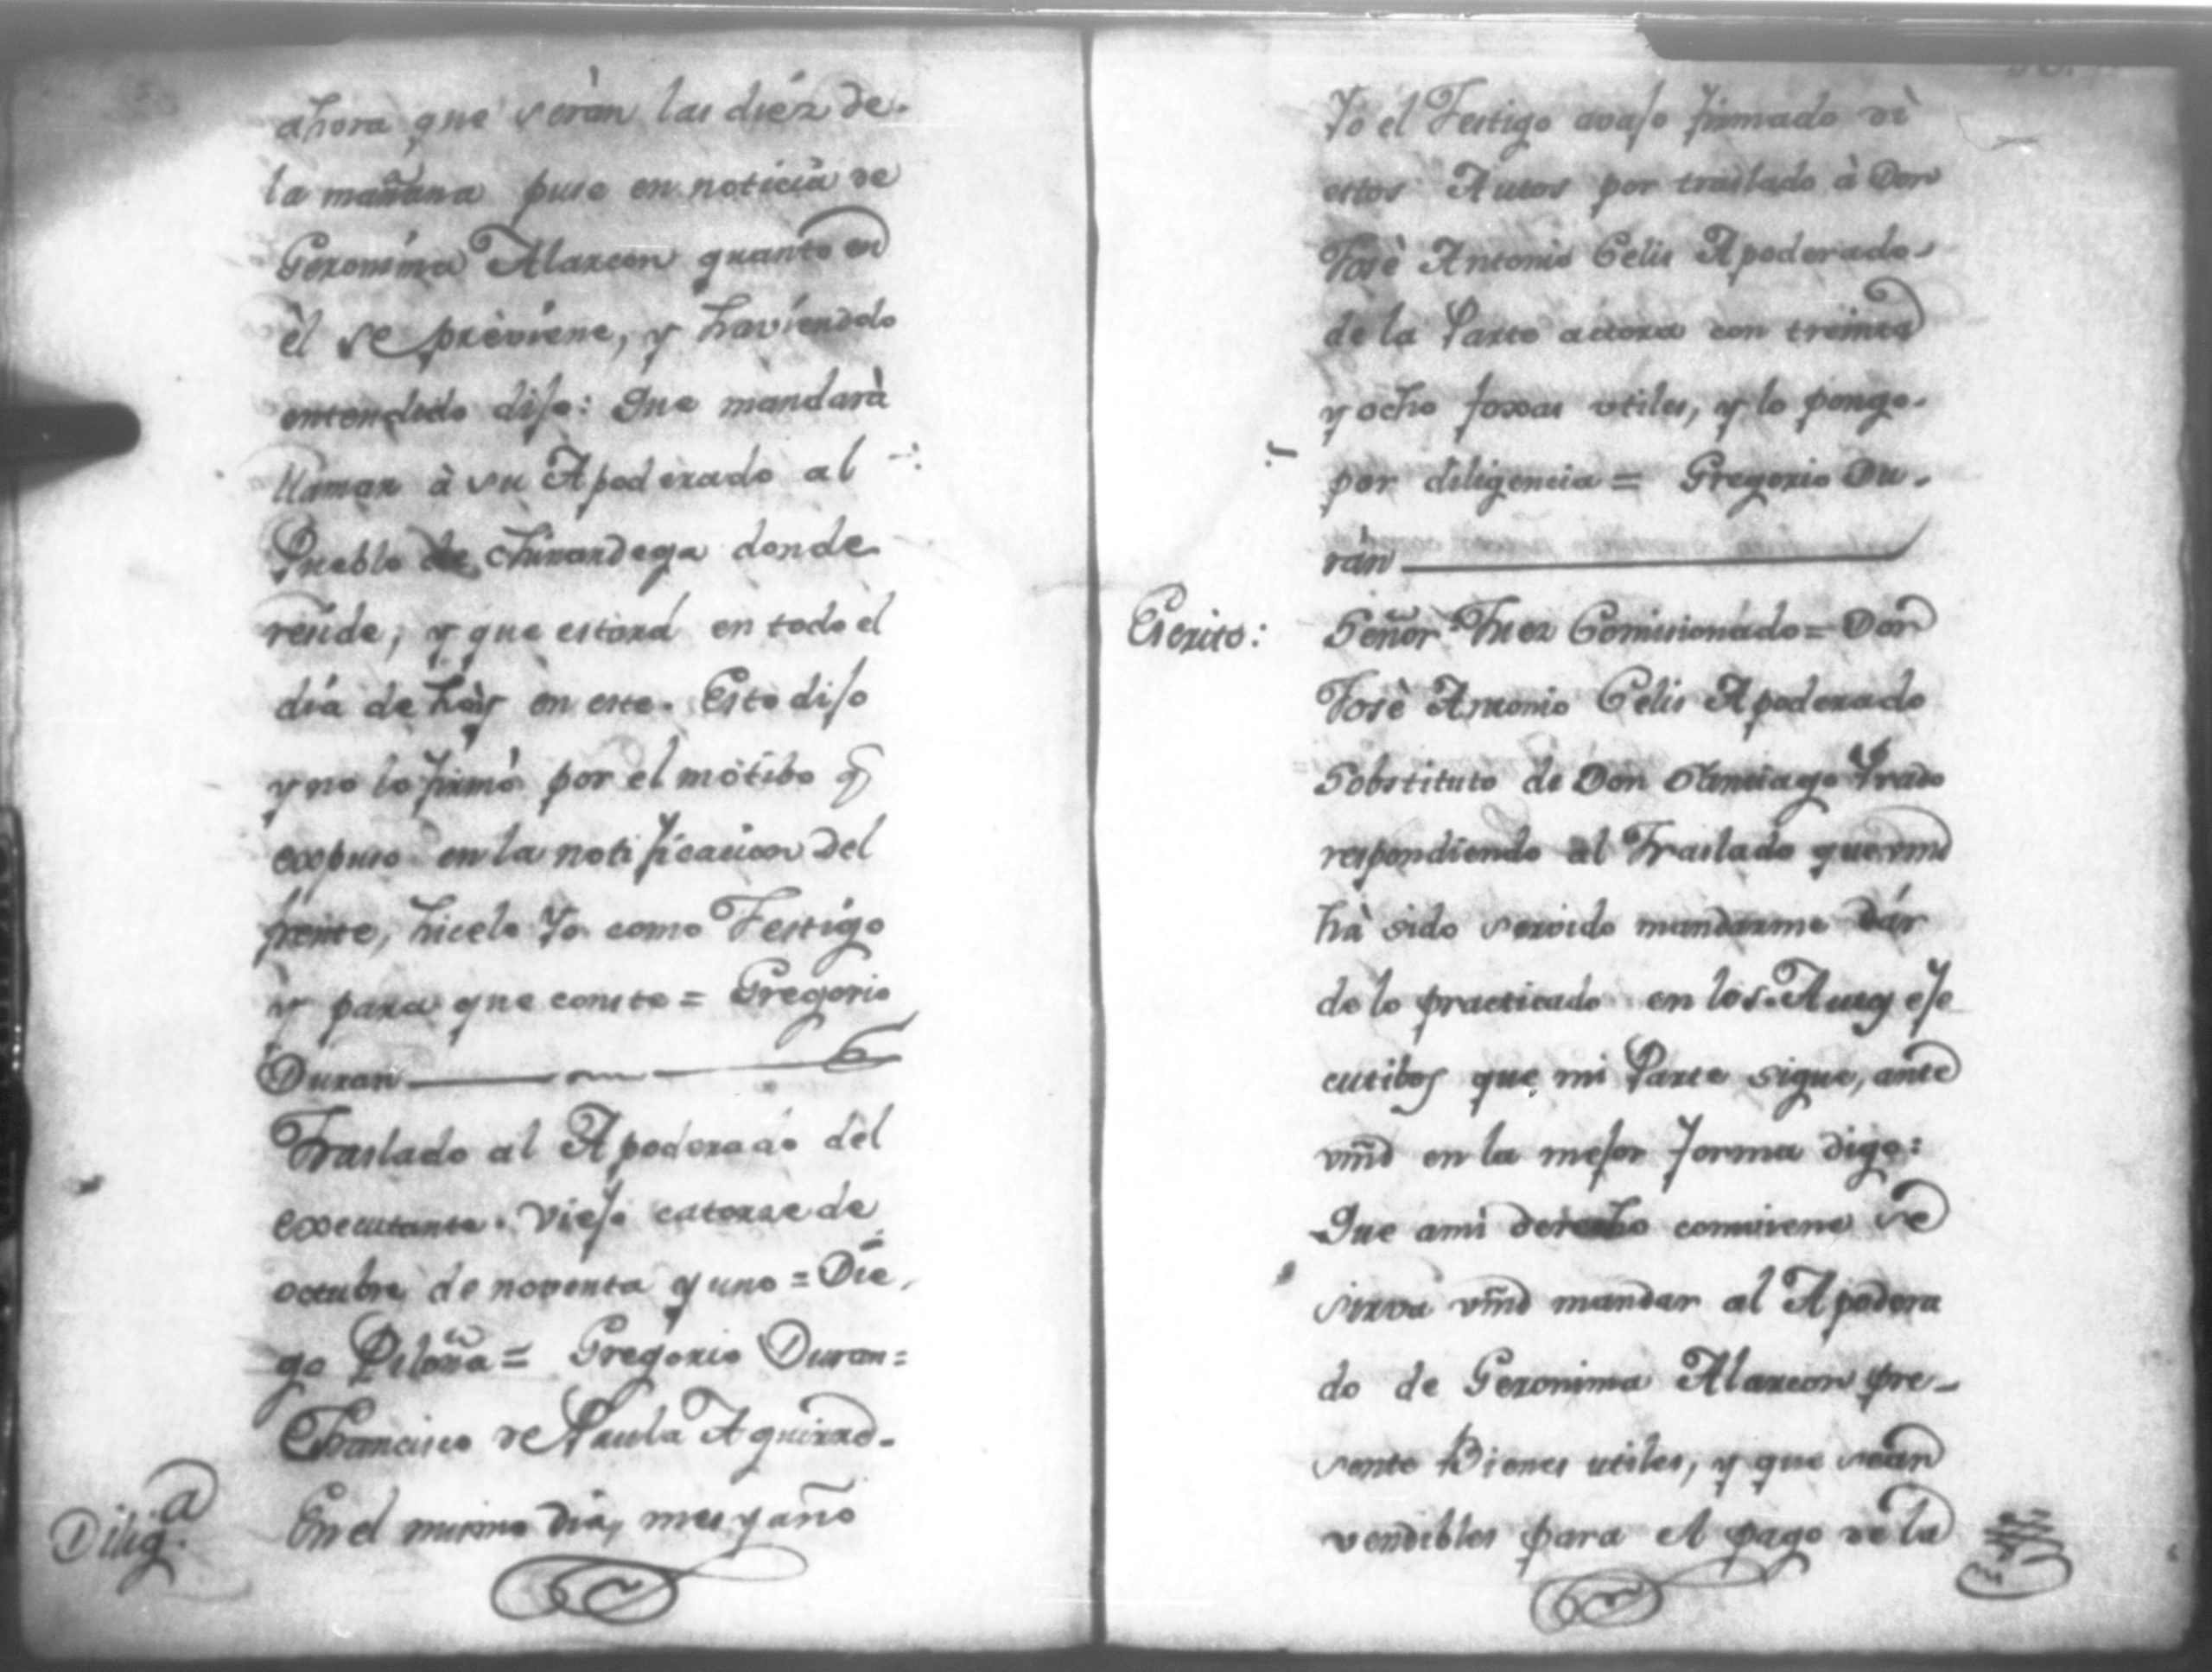 ahora que seràn las diéz de
la mañana puse en noticia de
Geronima Alarcon quanto en
èl se previene, y haviendolo
entendido dijo: Que mandarà
llamar à su Apoderado al
Pueblo de Chinandega donde
reside, y que estará en todo el
día de hòy en este. Esto dijo
y no lo firmò por el motibo q.
expuso en la notificacion del
frente, hicelo Yo como Testigo
y para que conste = Gregorio
Duran
Traslado al Apoderado del
executante. Viejo catorze de
octubre de noventa y uno = Die
go Piloña = Gregorio Duran =
Francisco de Paula Aguirre.
Dilig.a
En el mismo dia, mes y año
Yo el Testigo avajo firmado dì
estos Autos por traslado à Don
Josè Antonio Celis Apoderado
de la Parte actora con treinta
y ocho foxas utiles, y lo pongo
por diligencia = Gregorio Du
ràn
Escrito:
Señor Juez Comisionado = Don
Josè Antonio Celis Apoderado
Sobstituto de Don Santiago Prado
respondiendo al Traslado que vmd
hà sido servido mandarme dár
de lo practicado en los Autos eje
cutibos que mi Parte sigue, ante
vmd en la mejor forma digo:
Que ami derecho comviene se
sirva vmd mandar al Apodera
do de Geronima Alarcon pre-
sente Bienes utiles, y que sean
vendibles para el pago de la